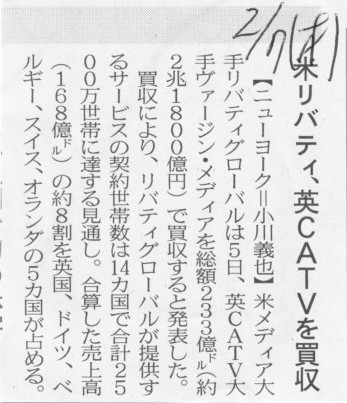 2/7(木)
米リバティ、英CATVを買収
【ニューヨーク=小川義也】米メディア大
手リバティグローバルは5日、英CATV大
手ヴァージン・メディアを総額233億㌦(約
2兆1800億円)で買収すると発表した。
買収により、リバティグローバルが提供す
るサービスの契約世帯数は14カ国で合計25
00万世帯に達する見通し。合算した売上高
(168億㌦)の約8割を英国、ドイツ、ベ
ルギー、スイス、オランダの5カ国が占める。